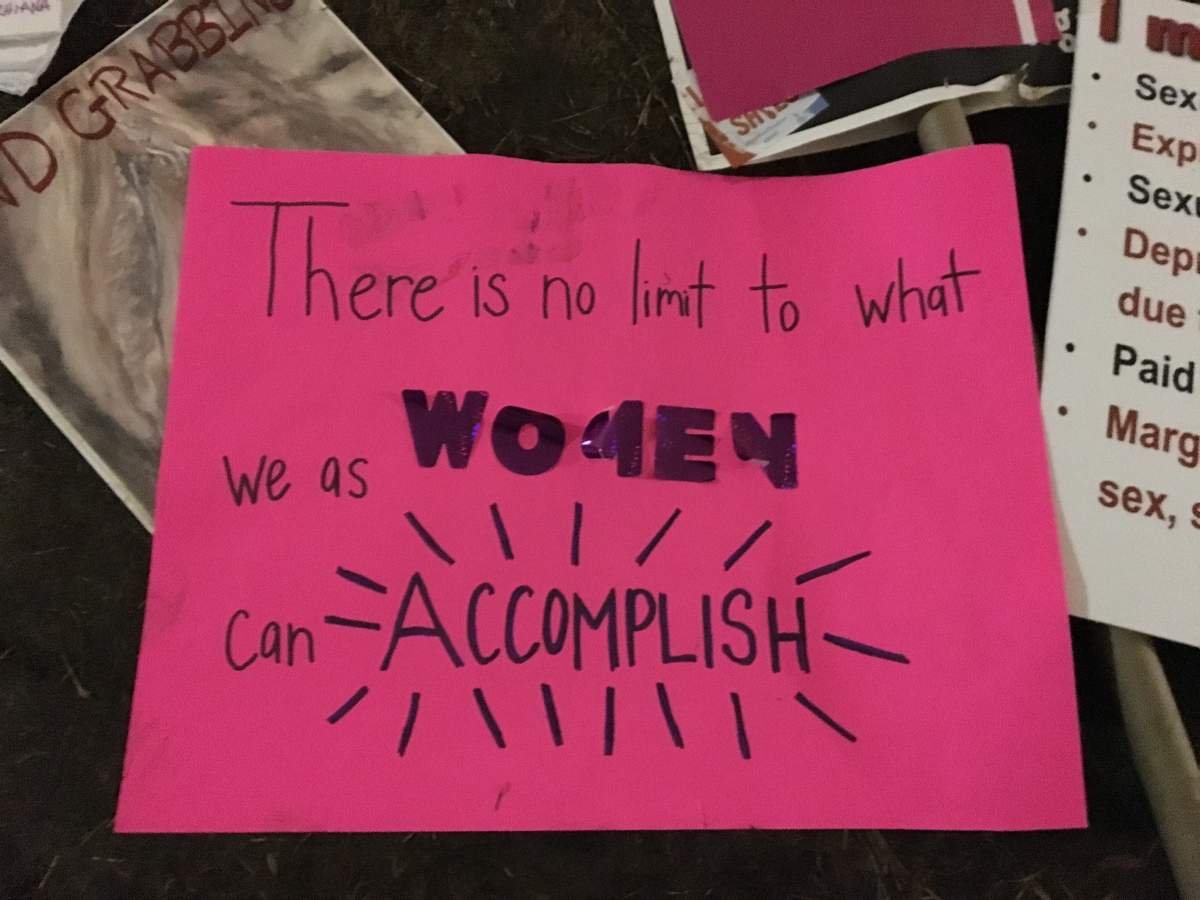 GRABBIN
There is no limit to what
we as WOMEN
can ACCOMPLISH
I
Sex
Sex
due
Paid
sex,